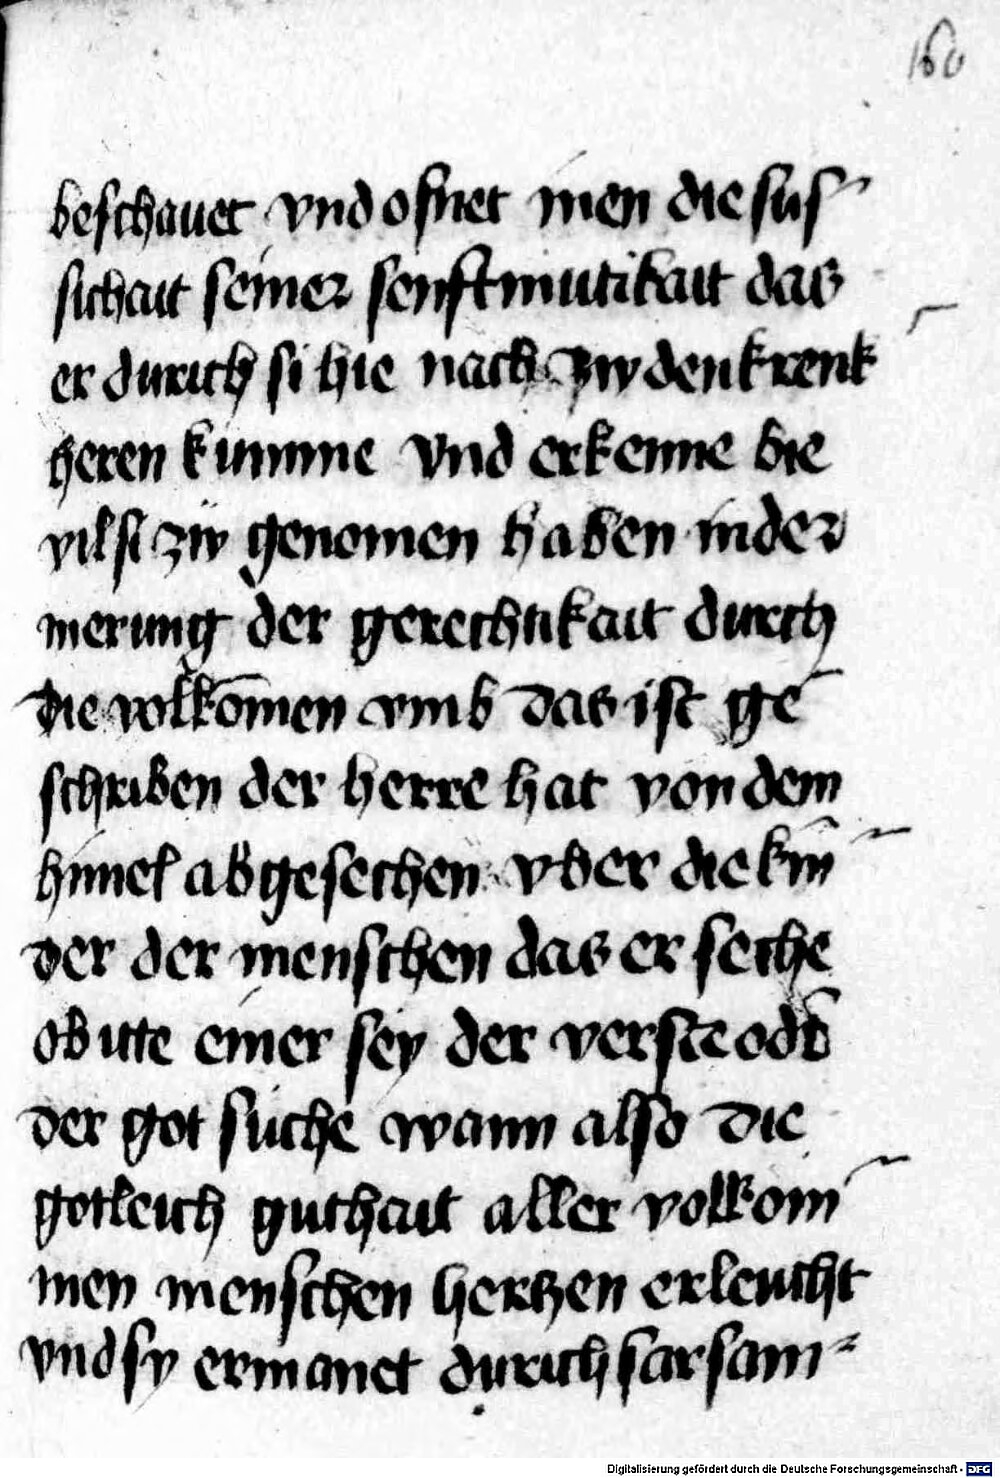 160
beschauet vnd ofnet inen die sus
sichait seiner senftmutikait das
er durich si hie nach zw den krenk
heren kumme vnd erkenne bie
vil si zw genomen haben in der
merung der gerechtikait durch
die volkōmen vmb das ist ge
schriben der herre hat von dem
himel abgesechen vber die kin
der der menschen das er seche
ob itte einer sey der verste oder
der got suche wann also die
gotleich guthait aller volkom
men menschen hertzen erleucht
vnd sy ermanet durich sarsam
Digitalisierung gefördert durch die Deutsche Forschungsgemeinschaft - DFG